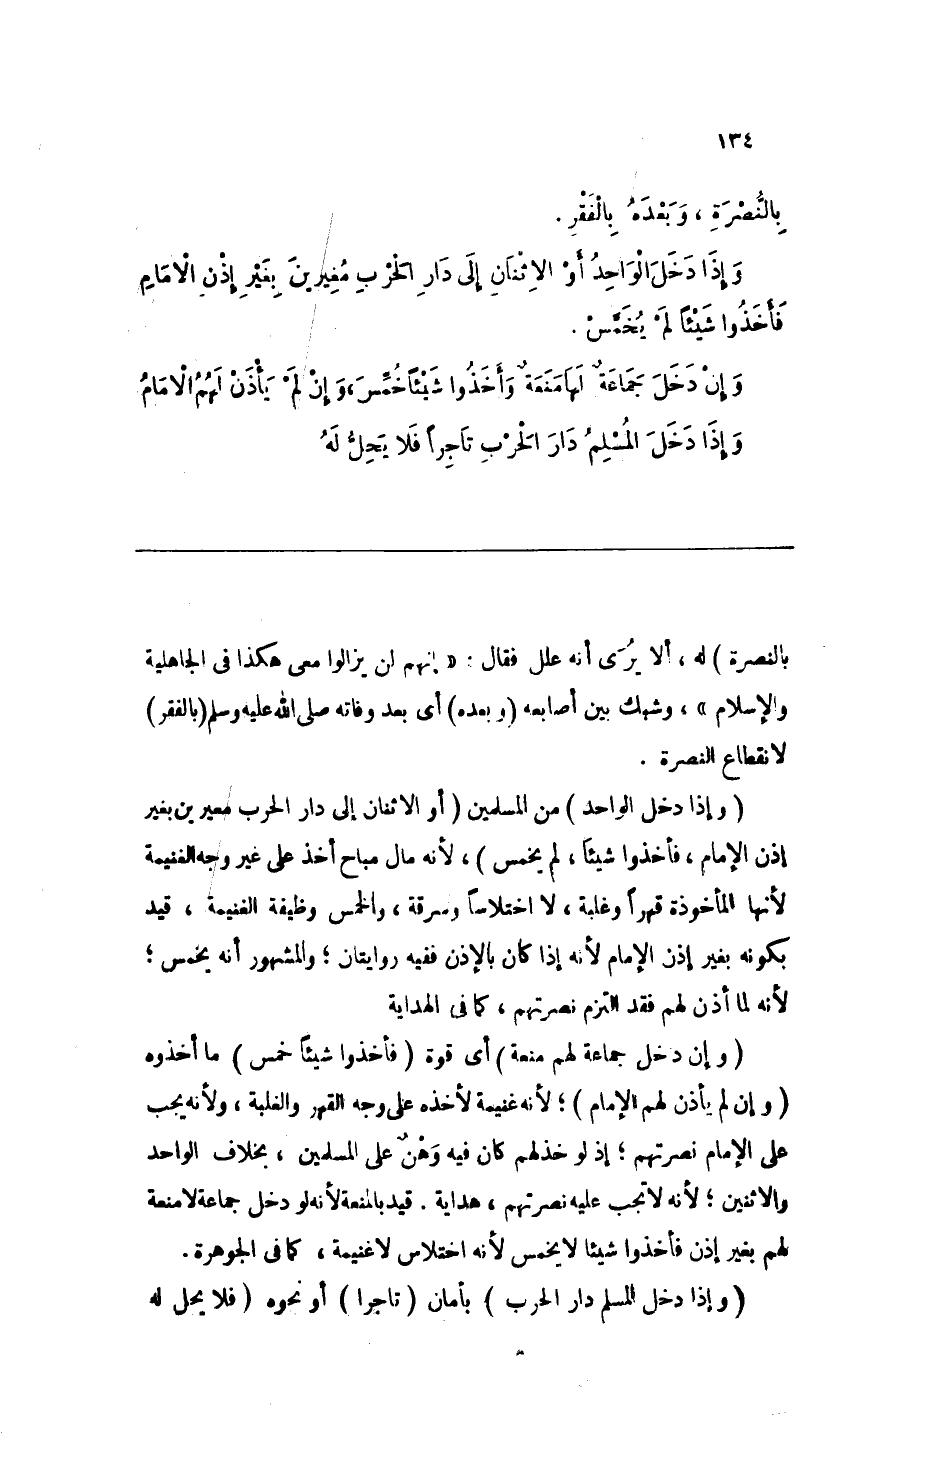 ١٣٤
بِالنُّصْرَةِ ، وَبَعْدَهُ بِالْفَقْرِ .
وَإِذَا دَخَلَ الْوَاحِدُ أَوْ الِاثْنَانِ إِلَى دَارِ الْحَرْبِ مُغِيرِينَ بِغَيْرِ إِذْنِ الْامَامِ
فَأَخَذُوا شَيْئًا لَمْ يُخَمَّسْ .
وَإِنْ دَخَلَ جَمَاعَةٌ لَهَا مَنَعَةٌ وَأَخَذُوا شَيْئًا خُمِّسَ ، وَإِنْ لَمْ يَأْذَنْ لَهُمُ الْامَامُ
وَإِذَا دَخَلَ الْمُسْلِمُ دَارَ الْحَرْبِ تَاجِراً فَلَا يَحِلُّ لَهُ
بالنصرة ) له ، ألا يُرَى أنه علل فقال : « إنهم لن يزالوا معى هكذا فى الجاهلية
والإسلام » ، وشبك بين أصابعه (وبعده) أى بعد وفاته صلى الله عليه وسلم (بالفقر)
لانقطاع النصرة .
( وإذا دخل الواحد ) من المسلمين ( أو الاثنان إلى دار الحرب مغيرين بغير
إذن الإمام ، فأخذوا شيئاً ، لم يخمس ) ، لأنه مال مباح أخذ على غير وجه الغنيمة
لأنها المأخوذة قهراً وغلبة ، لا اختلاساً وسرقة ، والخمس وظيفة الغنيمة ، قيد
بكونه بغير إذن الإمام لأنه إذا كان بالإذن ففيه روايتان ؛ والمشهور أنه يخمس ؛
لأنه لما أذن لهم فقد التزم نصرتهم ، كما فى الهداية
( وإن دخل جماعة لهم منعة ) أى قوة ( فأخذوا شيئاً خمس ) ما أخذوه
( وإن لم يأذن لهم الإمام ) ؛ لأنه غنيمة لأخذه على وجه القهر والغلبة ، ولأنه يجب
على الإمام نصرتهم ؛ إذ لو خذلهم كان فيه وَهْنٌ على المسلمين ، بخلاف الواحد
والاثنين ؛ لأنه لا تجب عليه نصرتهم ، هداية . قيد بالمنعة لأنه لو دخل جماعة لا منعة
لهم بغير إذن فأخذوا شيئا لا يخمس لأنه اختلاس لا غنيمة ، كما فى الجوهرة .
( وإذا دخل المسلم دار الحرب ) بأمان ( تاجرا ) أو نحوه ( فلا يحل له